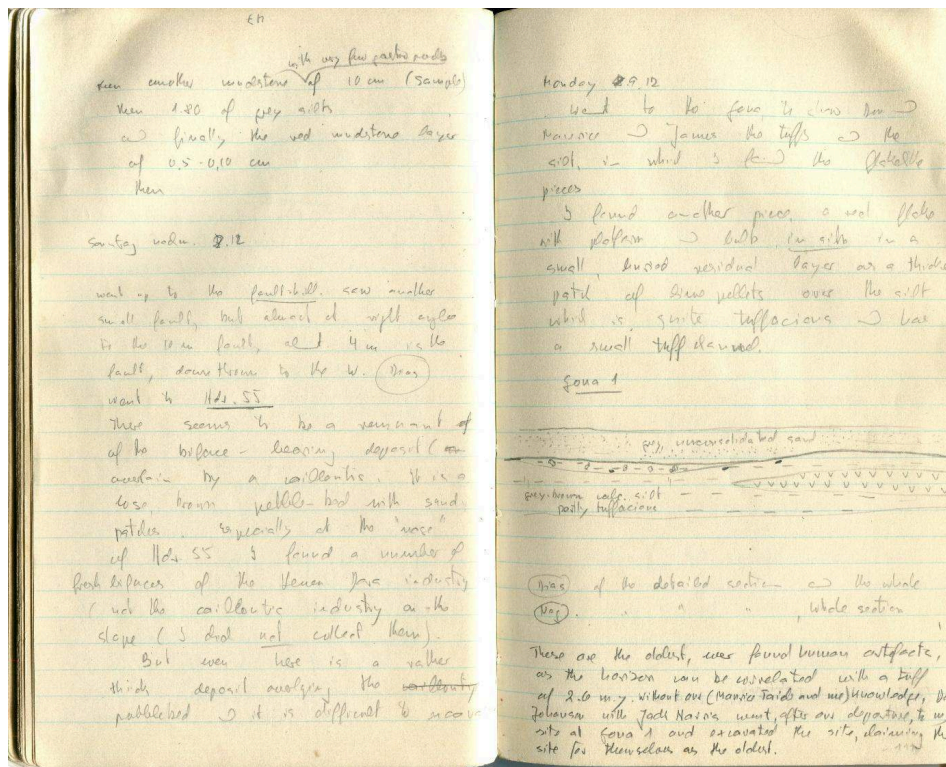 with very few gastropods
then another mudstone of 10 cm (sample)
then 1.80 of grey silts
and finally the red mudstone layer
of 0,5-0,10 cm
then
Sonntag nachm. 8.12
went up to the fault hill. saw another
small fault, but almost at right angles
to the 10 m fault, 4 m is the
fault, downthrown to the W. Dias
went to Hdr. 55
There seems to be a remnant of
of the biface-bearing deposit (
overlain by a cailloutis. it is a
loose, brown pebble-bed with sand
patches. especially at the "nose"
of Hdr 55 I found a number of
fresh bifaces of the industry
(not the cailloutis industry on the
slope (I did not collect them).
But even here is a rather
thick deposit overlying the
pebblebed and it is difficult to
Monday 9.12
Went to the Gona to show
Maurice and James the tuffs and the
silt, in which I found the
pieces
I found another piece, a red flake
with platform and bulb, in situ in a
small, buried residual layer as a
patch of lime pellets over the silt
which is quite tuffacious and has
a small tuff channel.
Gona 1
grey, unconsolidated sand
grey-brown calc. silt
partly tuffacious
Dias of the detailed section and the whole
Neg. " " whole section
These are the oldest, ever found human artefacts,
as the horizon can be correlated with a tuff
of 2.6 m.y. without our (Maurice Taieb and me) knowledge,
Johanson with Jack Harris went, after our departure, to
site at Gona 1 and excavated the site, claiming
site for themselves as the oldest.